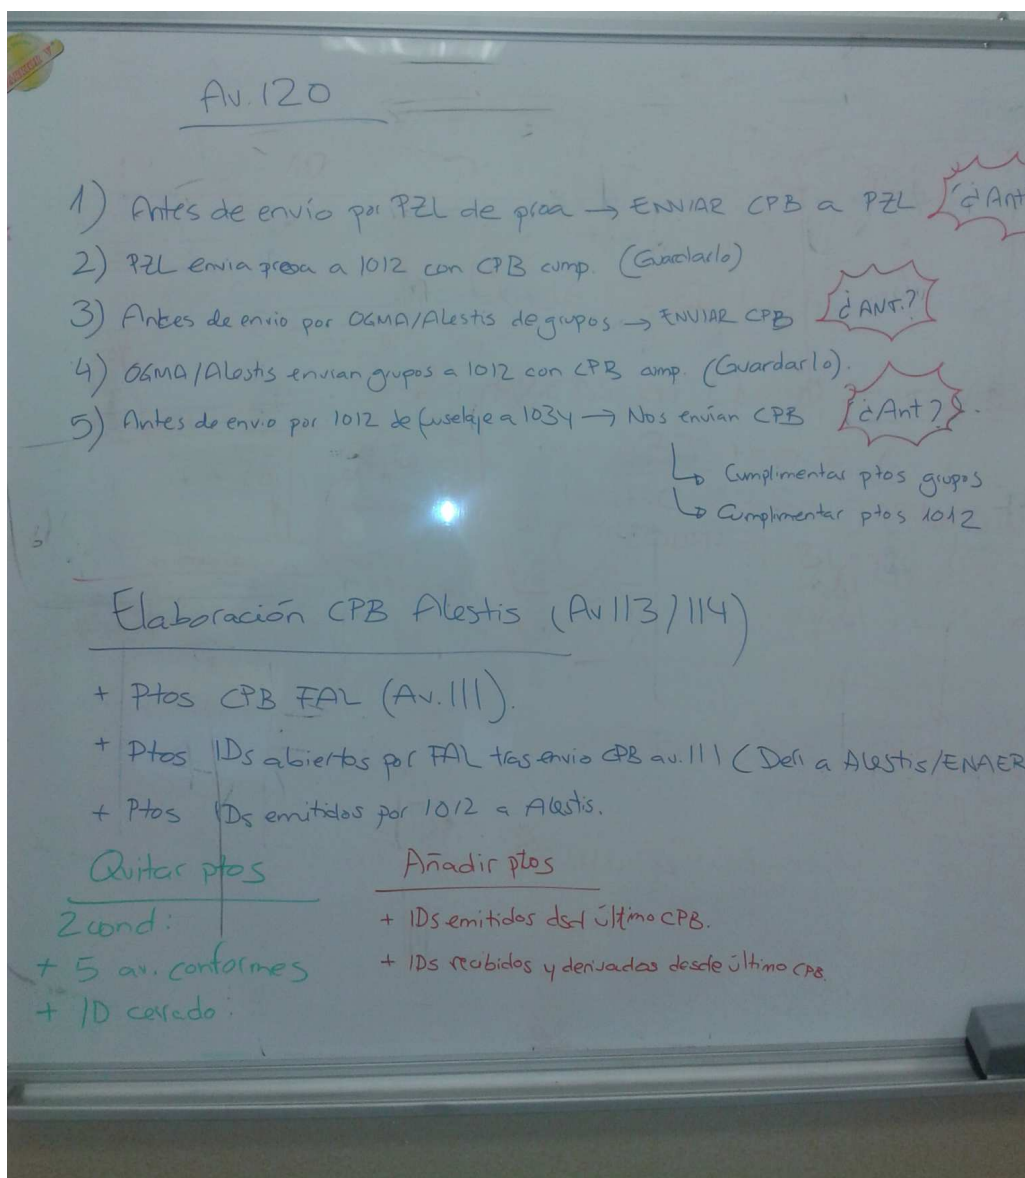 Av. 120
1) Antes de envío por PZL de proa → ENVIAR CPB a PZL ¿Ant
2) PZL envia proa a 1012 con CPB cump. (Guardarlo)
3) Antes de envio por OGMA/Alestis de grupos → ENVIAR CPB ¿ANT.?
4) OGMA/Alestis envian grupos a 1012 con CPB cump. (Guardarlo).
5) Antes de envio por 1012 de fuselaje a 1034 → Nos envían CPB ¿Ant?.
↳ Cumplimentar ptos grupos
↳ Cumplimentar ptos 1012
Elaboración CPB Alestis (Av 113/114)
+ Ptos CPB FAL (Av. 111).
+ Ptos IDs abiertos por FAL tras envio CPB av. 111 (Deri a Alestis/ENAER
+ Ptos IDs emitidos por 1012 a Alestis.
Quitar ptos
2 cond:
+ 5 av. conformes
+ ID cerrado.
Añadir ptos
+ IDs emitidos dsd último CPB.
+ IDs recibidos y derivados desde último CPB.